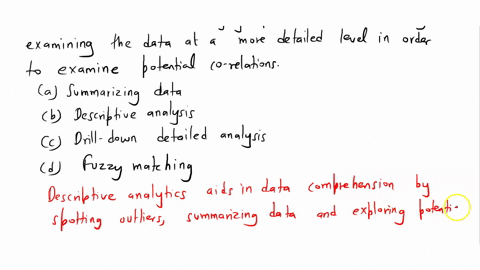 examining the data at a more detailed level in order
to examine potential co-relations.
(a) Summarizing data
(b) Descriptive analysis
(c) Drill-down detailed analysis
(d) Fuzzy matching
Descriptive analytics aids in data comprehension by
spotting outliers, summarizing data and exploring potenti